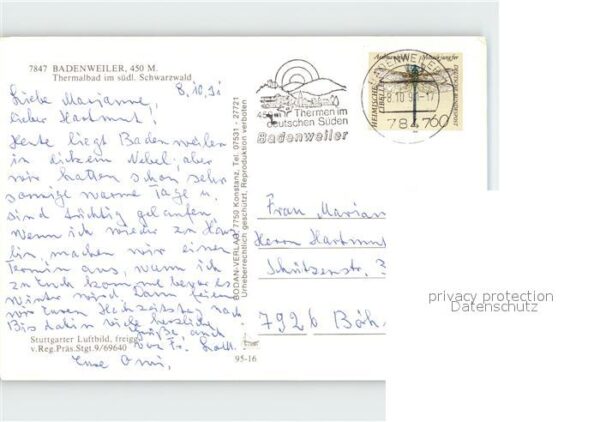 7847 BADENWEILER, 450 M.
Thermalbad im südl. Schwarzwald
8.10.91
Liebe Marianne,
lieber Hartmut!
Heute liegt Badenweiler
in dickem Nebel; aber
wir hatten schon sehr
sonnige warme Tage u.
sind tüchtig gelaufen.
Wenn ich wieder zu Hau
bin, machen wir einen
Termin aus, wann ich
zu Euch komme bevor es
Winter wird. Dann feiern
wir Euren Hochzeitstag nach
Bis dahin viele herzliche
Grüße, auch
von Fr.
Eure Omi,
Stuttgarter Luftbild, freigg.
v.Reg.Präs.Stgt.9/69640
95-16
BODAN-VERLAG, 7750 Konstanz, Tel. 07531 - 27721
Urheberrechtlich geschützt, Reproduktion verboten
Thermen im
deutschen Süden
Badenweiler
BADENWEILER
10.91-17
7847
HEIMISCHE
LIBELLEN
60
DEUTSCHE BUNDESPOST
Frau Marian
Herrn Hartmut
Schützenstr. 3
7926 Böh
privacy protection
Datenschutz